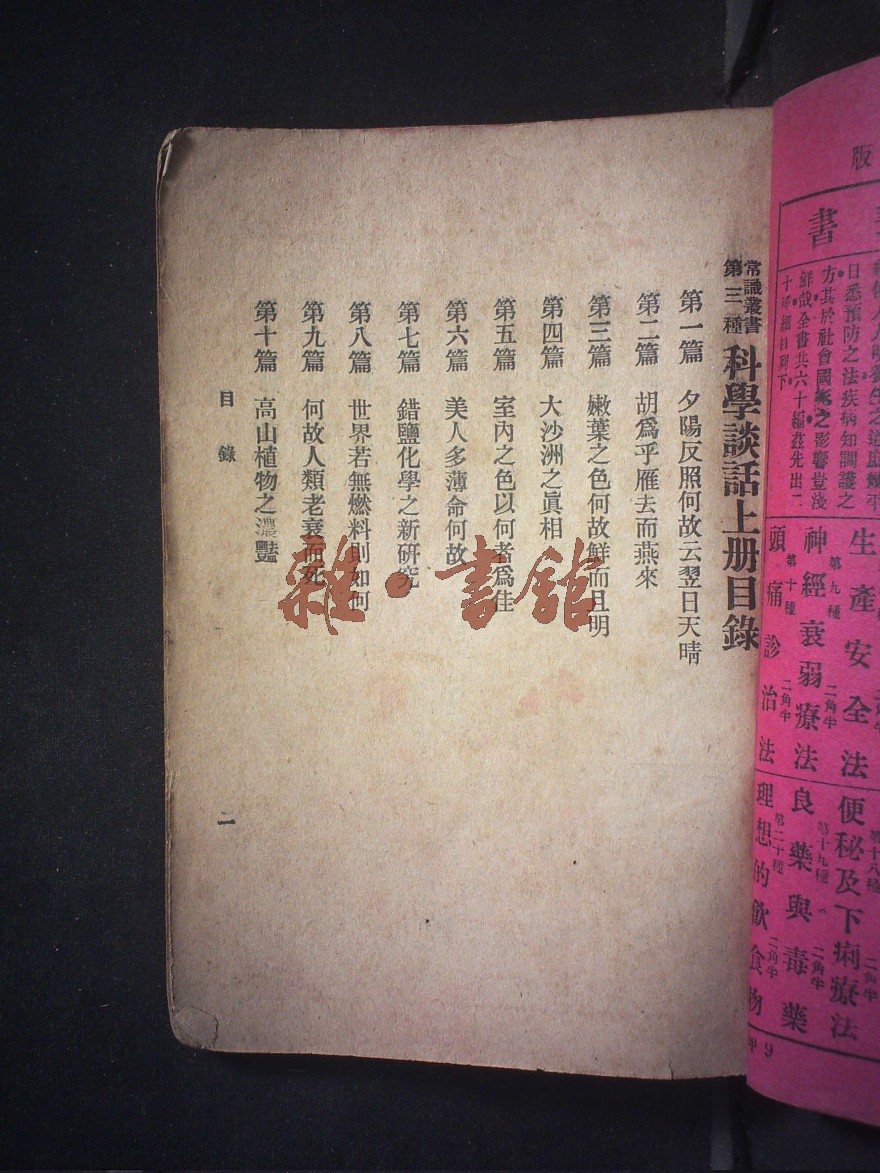 常識叢書
第三種
科學談話上册目錄
第一篇 夕陽反照何故云翌日天晴
第二篇 胡爲乎雁去而燕來
第三篇 嫩葉之色何故鮮而且明
第四篇 大沙洲之眞相
第五篇 室內之色以何者爲佳
第六篇 美人多薄命何故
第七篇 錯鹽化學之新研究
第八篇 世界若無燃料則如何
第九篇 何故人類老衰而死
第十篇 高山植物之濃豔
目錄
二
雜·書館
版
書
日悉預防之法疾病知調護之
方其於社會國家之影響豈淺
鮮哉全書共六十編茲先出二
十種編目列下
生產安全法
二角半
第九種
神經衰弱療法
二角半
第十種
頭痛診治法
二角半
第十八種
便秘及下痢療法
二角半
第十九種
良藥與毒藥
二角半
第二十種
理想的飲食物
二角半
甲 9